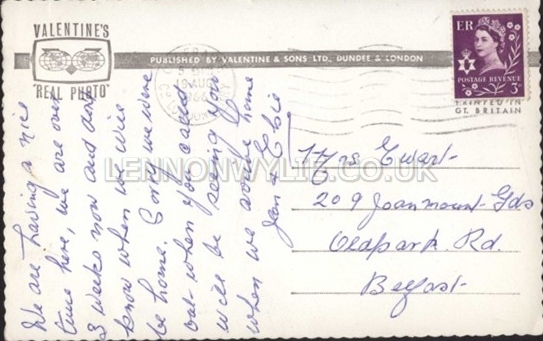 VALENTINE'S
"REAL PHOTO"
PUBLISHED BY VALENTINE & SONS LTD., DUNDEE & LONDON
E R
POSTAGE REVENUE
3D
PRINTED IN
GT. BRITAIN
19 AUG
We are having a nice
time here, we are out
3 weeks now and dont
know when we will
be home. Sorry we were
out when you called
will be seeing you
when we arrive home
Jen & Elsie
Mrs Ewart
209 Joanmount Gds
Oldpark Rd.
Belfast
LENNONWYLIE.CO.UK